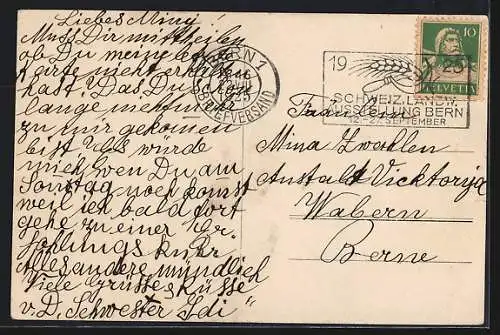 Liebes Miny!
Muss Dir mitteilen
ob Du meine
Karte nicht erhalten
hast. Das Du schon
lange nicht mehr
zu mir gekommen
bist. Es wurde
mich, wen Du am
Sonntag noch komst
weil ich bald fort
gehe zu einer Er-
hollungs Kuhr.
Alles andere mündlich
Viele Grüsse & Küsse
v. D. Schwester Idi"
BERN 1
BRIEFVERSAND
19 25
SCHWEIZ. LANDW.
AUSSTELLUNG BERN
12.-27. SEPTEMBER
10
HELVETIA
Fräulein
Mina Zwahlen
Anstalt Vicktorija
Wabern
Berne